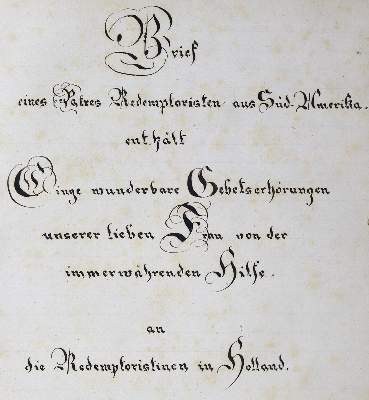 Brief
eines Patres Redemptoristen aus Süd-Amerika.
enthält
Einge wunderbare Gebetserhörungen
unserer lieben Frau von der
immerwährenden Hilfe.
an
die Redemptoristinen in Holland.